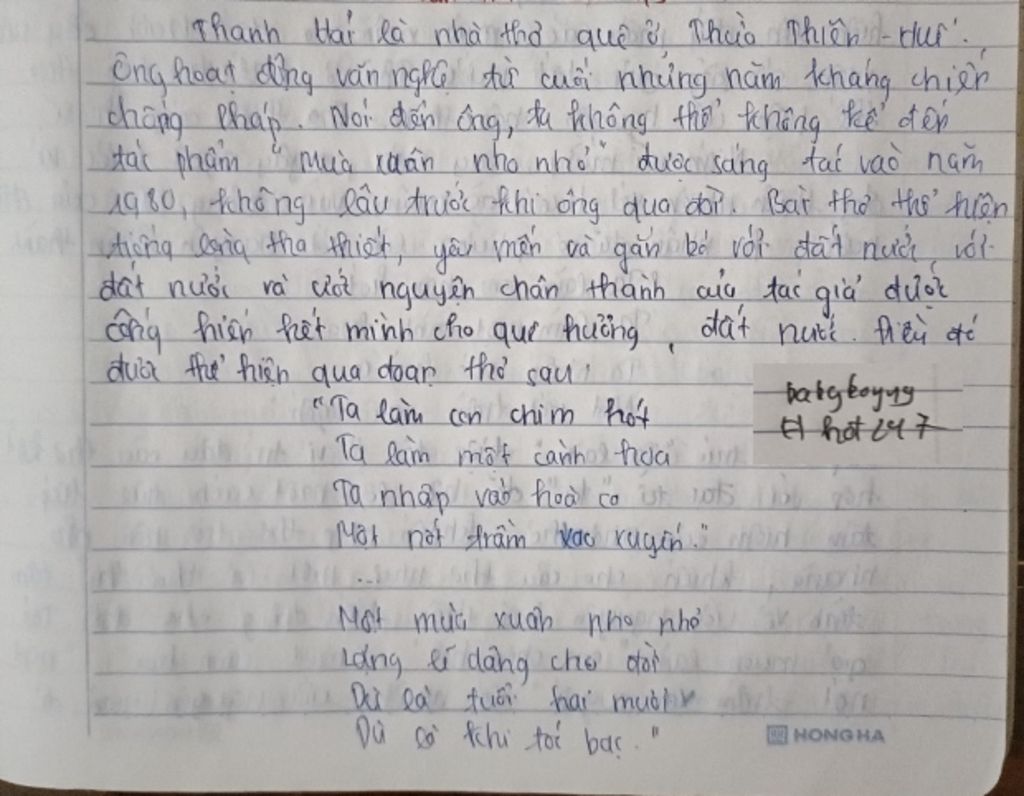 Thanh Hải là nhà thơ quê ở Thừa Thiên - Huế.
Ông hoạt động văn nghệ từ cuối những năm kháng chiến
chống Pháp. Nói đến ông, ta không thể không kể đến
tác phẩm "Mùa xuân nho nhỏ" được sáng tác vào năm
1980, không lâu trước khi ông qua đời. Bài thơ thể hiện
tiếng lòng tha thiết, yêu mến và gắn bó với đất nước, với
đất nước và ước nguyện chân thành của tác giả được
cống hiến hết mình cho quê hương, đất nước. Điều đó
được thể hiện qua đoạn thơ sau:
"Ta làm con chim hót
Ta làm một cành hoa
Ta nhập vào hoà ca
Một nốt trầm xao xuyến."
...
Một mùa xuân nho nhỏ
Lặng lẽ dâng cho đời
Dù là tuổi hai mươi
Dù có khi tóc bạc."
HONG HA